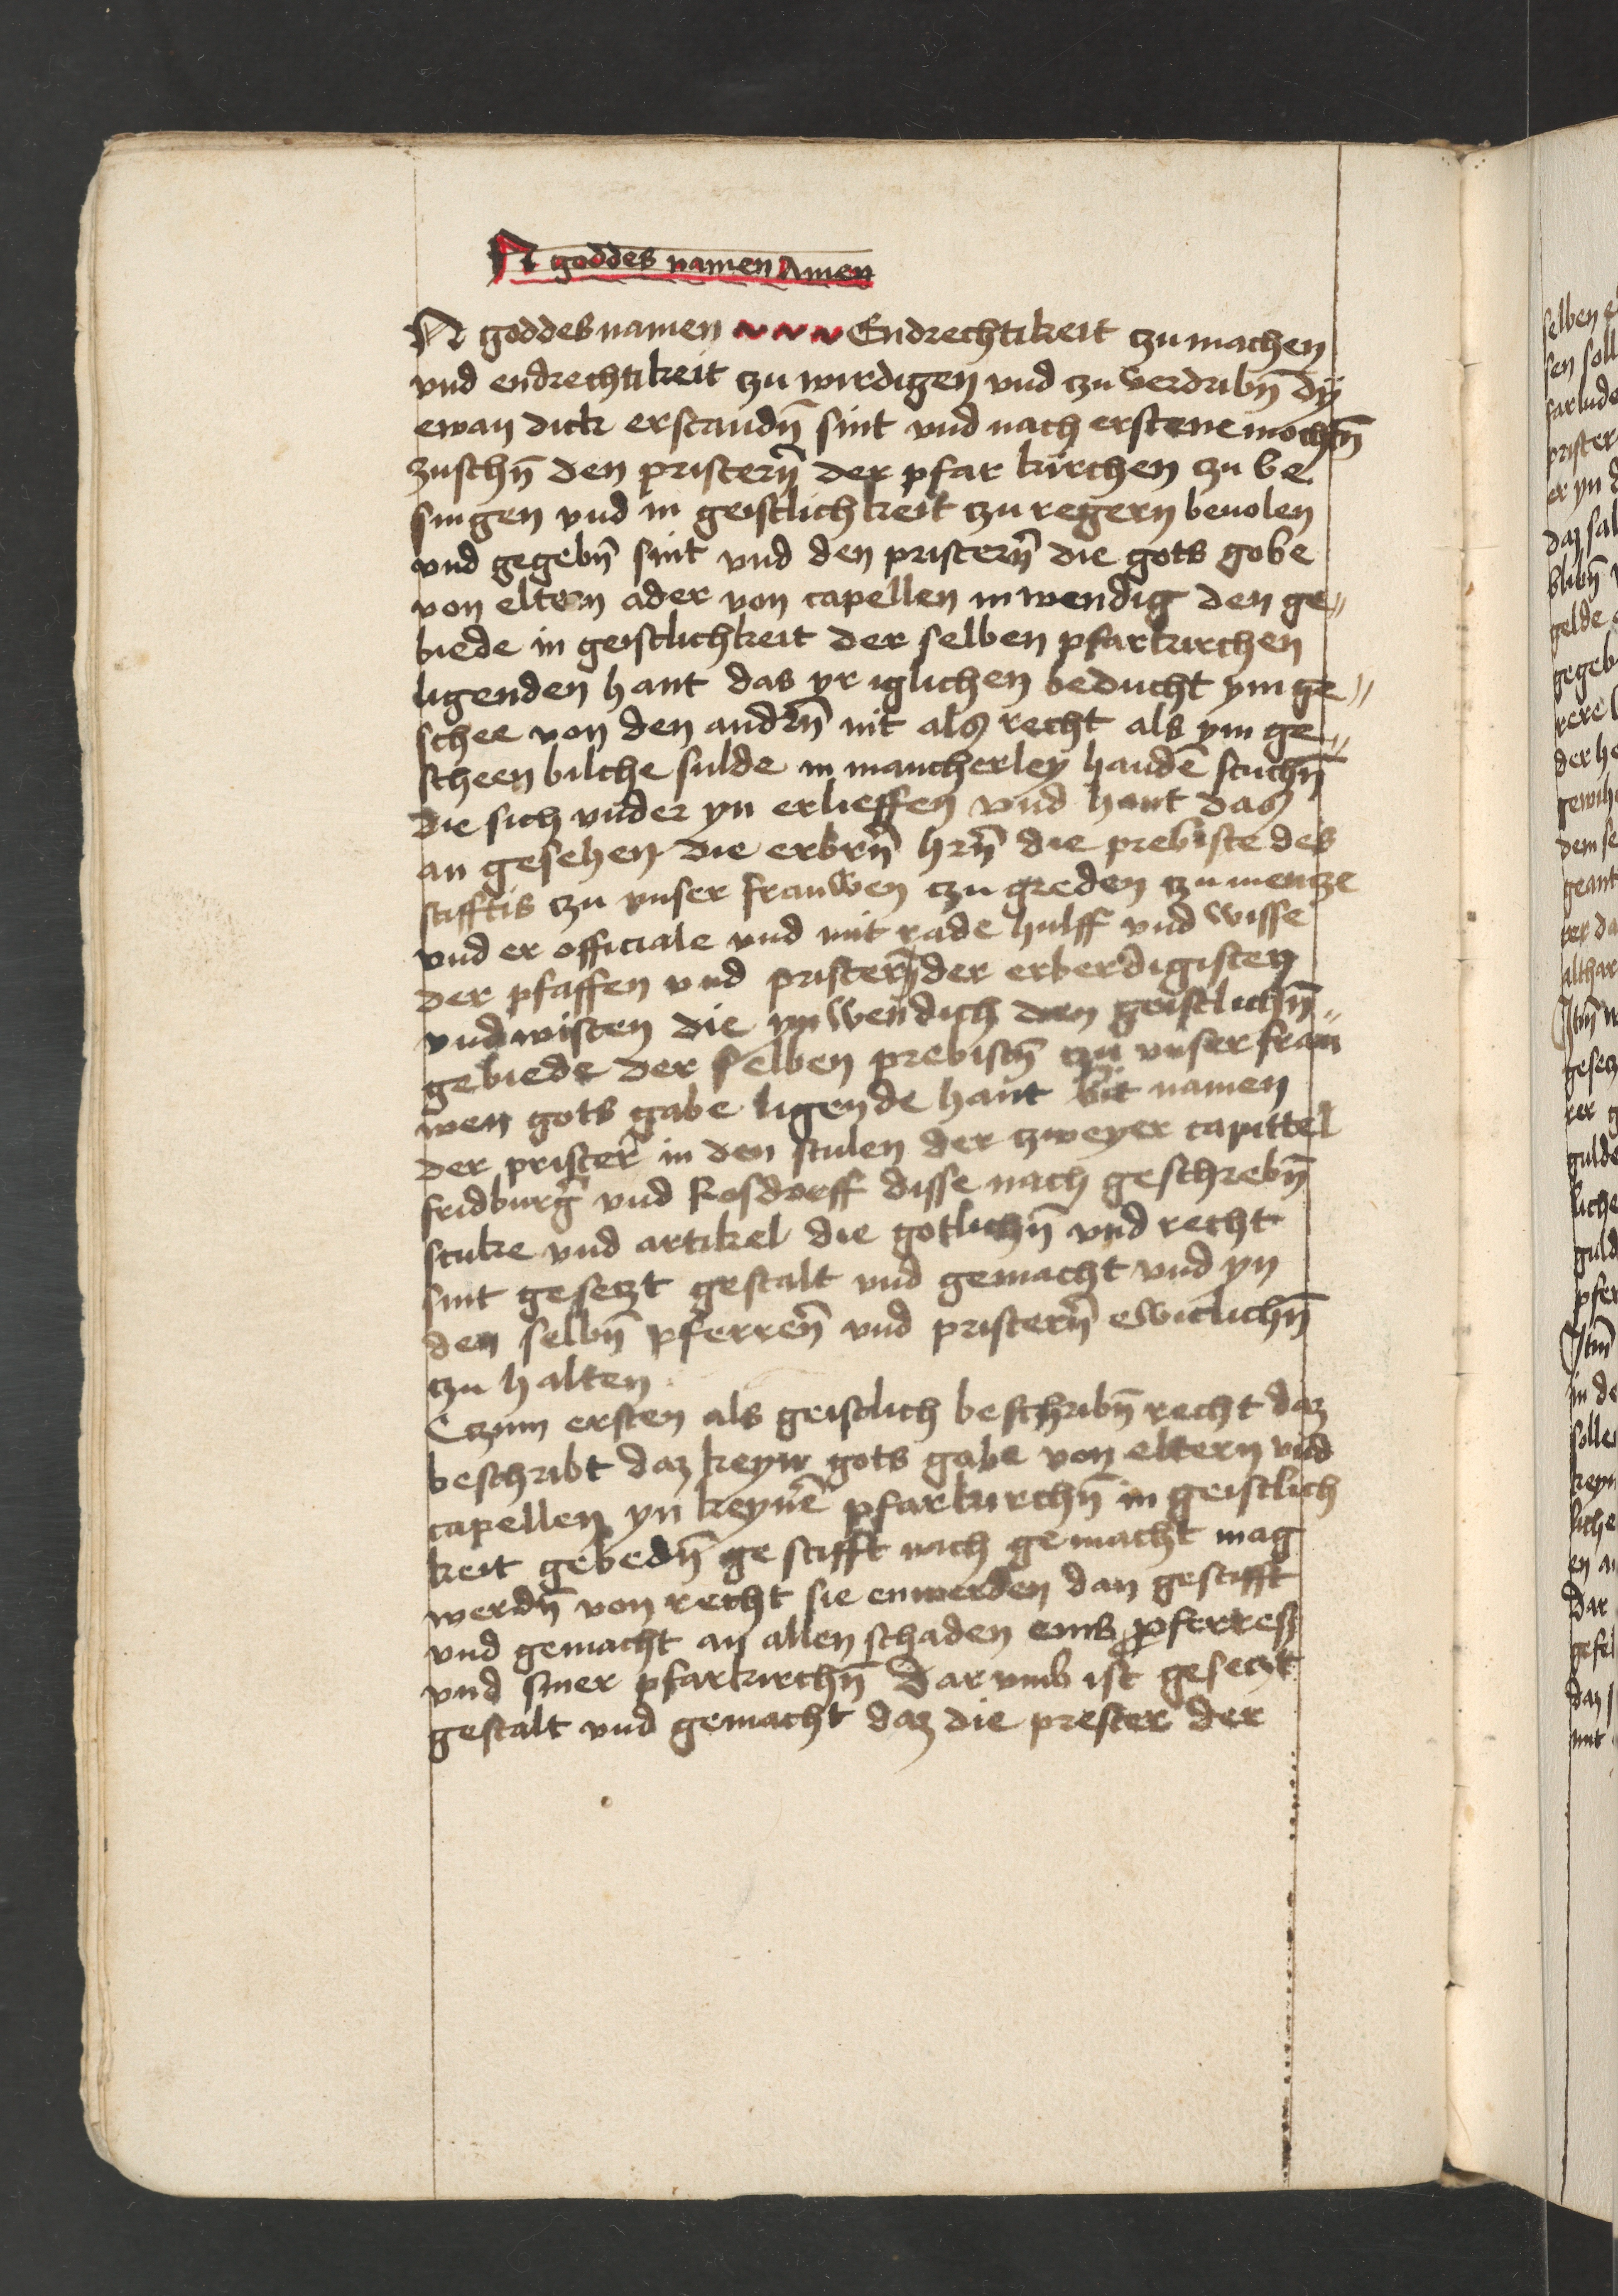 N goddes namen Amen
N goddes namen Endrechtikeit tzu machen
vnd endrechtikeit tzu wirdigen vnd tzu verdribn̄ dÿ
ewan dick erstandn̄ sint vnd nach erstene mochtn̄
zuschn̄ den pristern̄ der pfar kirchen tzu be
singen vnd in geistlichkeit tzu regern beuolen
vnd gegebn̄ sint vnd den pristern̄ die gots gobe
von eltern ader von capellen inwendig den ge〃
biede in geistlichkeit der selben pfarkirchen
ligenden hant das yr iglichen beducht ym ge〃
schee von den andrn̄ nit als recht als ym ge〃
scheen bilche sulde in mancherley handē stuchn̄
die sich vnder yn erlieffen vnd hant das
an gesehen die erbrn̄ hrn̄ die prebiste des
stifftis tzu vnser frauwen tzu greden tzu mentze
vnd er officiale vnd mit rade hulff vnd wisse
der pfaffen vnd pristern̄ der erberdigisten
vnd wisten die ynwendich den geistlichn̄〃
gebiede der selben prebistn̄ tzu vnser frau
wen gots gabe ligende hant bit namen
der prister̄ in den stulen der tzweyer capittel
fridburḡ vnd Rosdorff disse nach geschrebn̄
stuke vnd artikel die gotlichn̄ vnd recht
sint gesetzt gestalt vnd gemacht vnd yn
den selbn̄ pferren̄ vnd pristern̄ ewiclichn̄
tzu halten
Czum ersten als geistlich beschribn̄ recht daz
beschribt daz keyn gots gabe von eltern vnd
capellen yn keynē pfarkirchn̄ in geistlich
keit gebedn̄ ge stifft nach gemacht mag
werdn̄ von recht sie enwerden dan gestifft
vnd gemacht an allen schaden eins pferres
vnd siner pfarkirchn̄ Dar vmb ist gesetzt
gestalt vnd gemacht daz die prester der